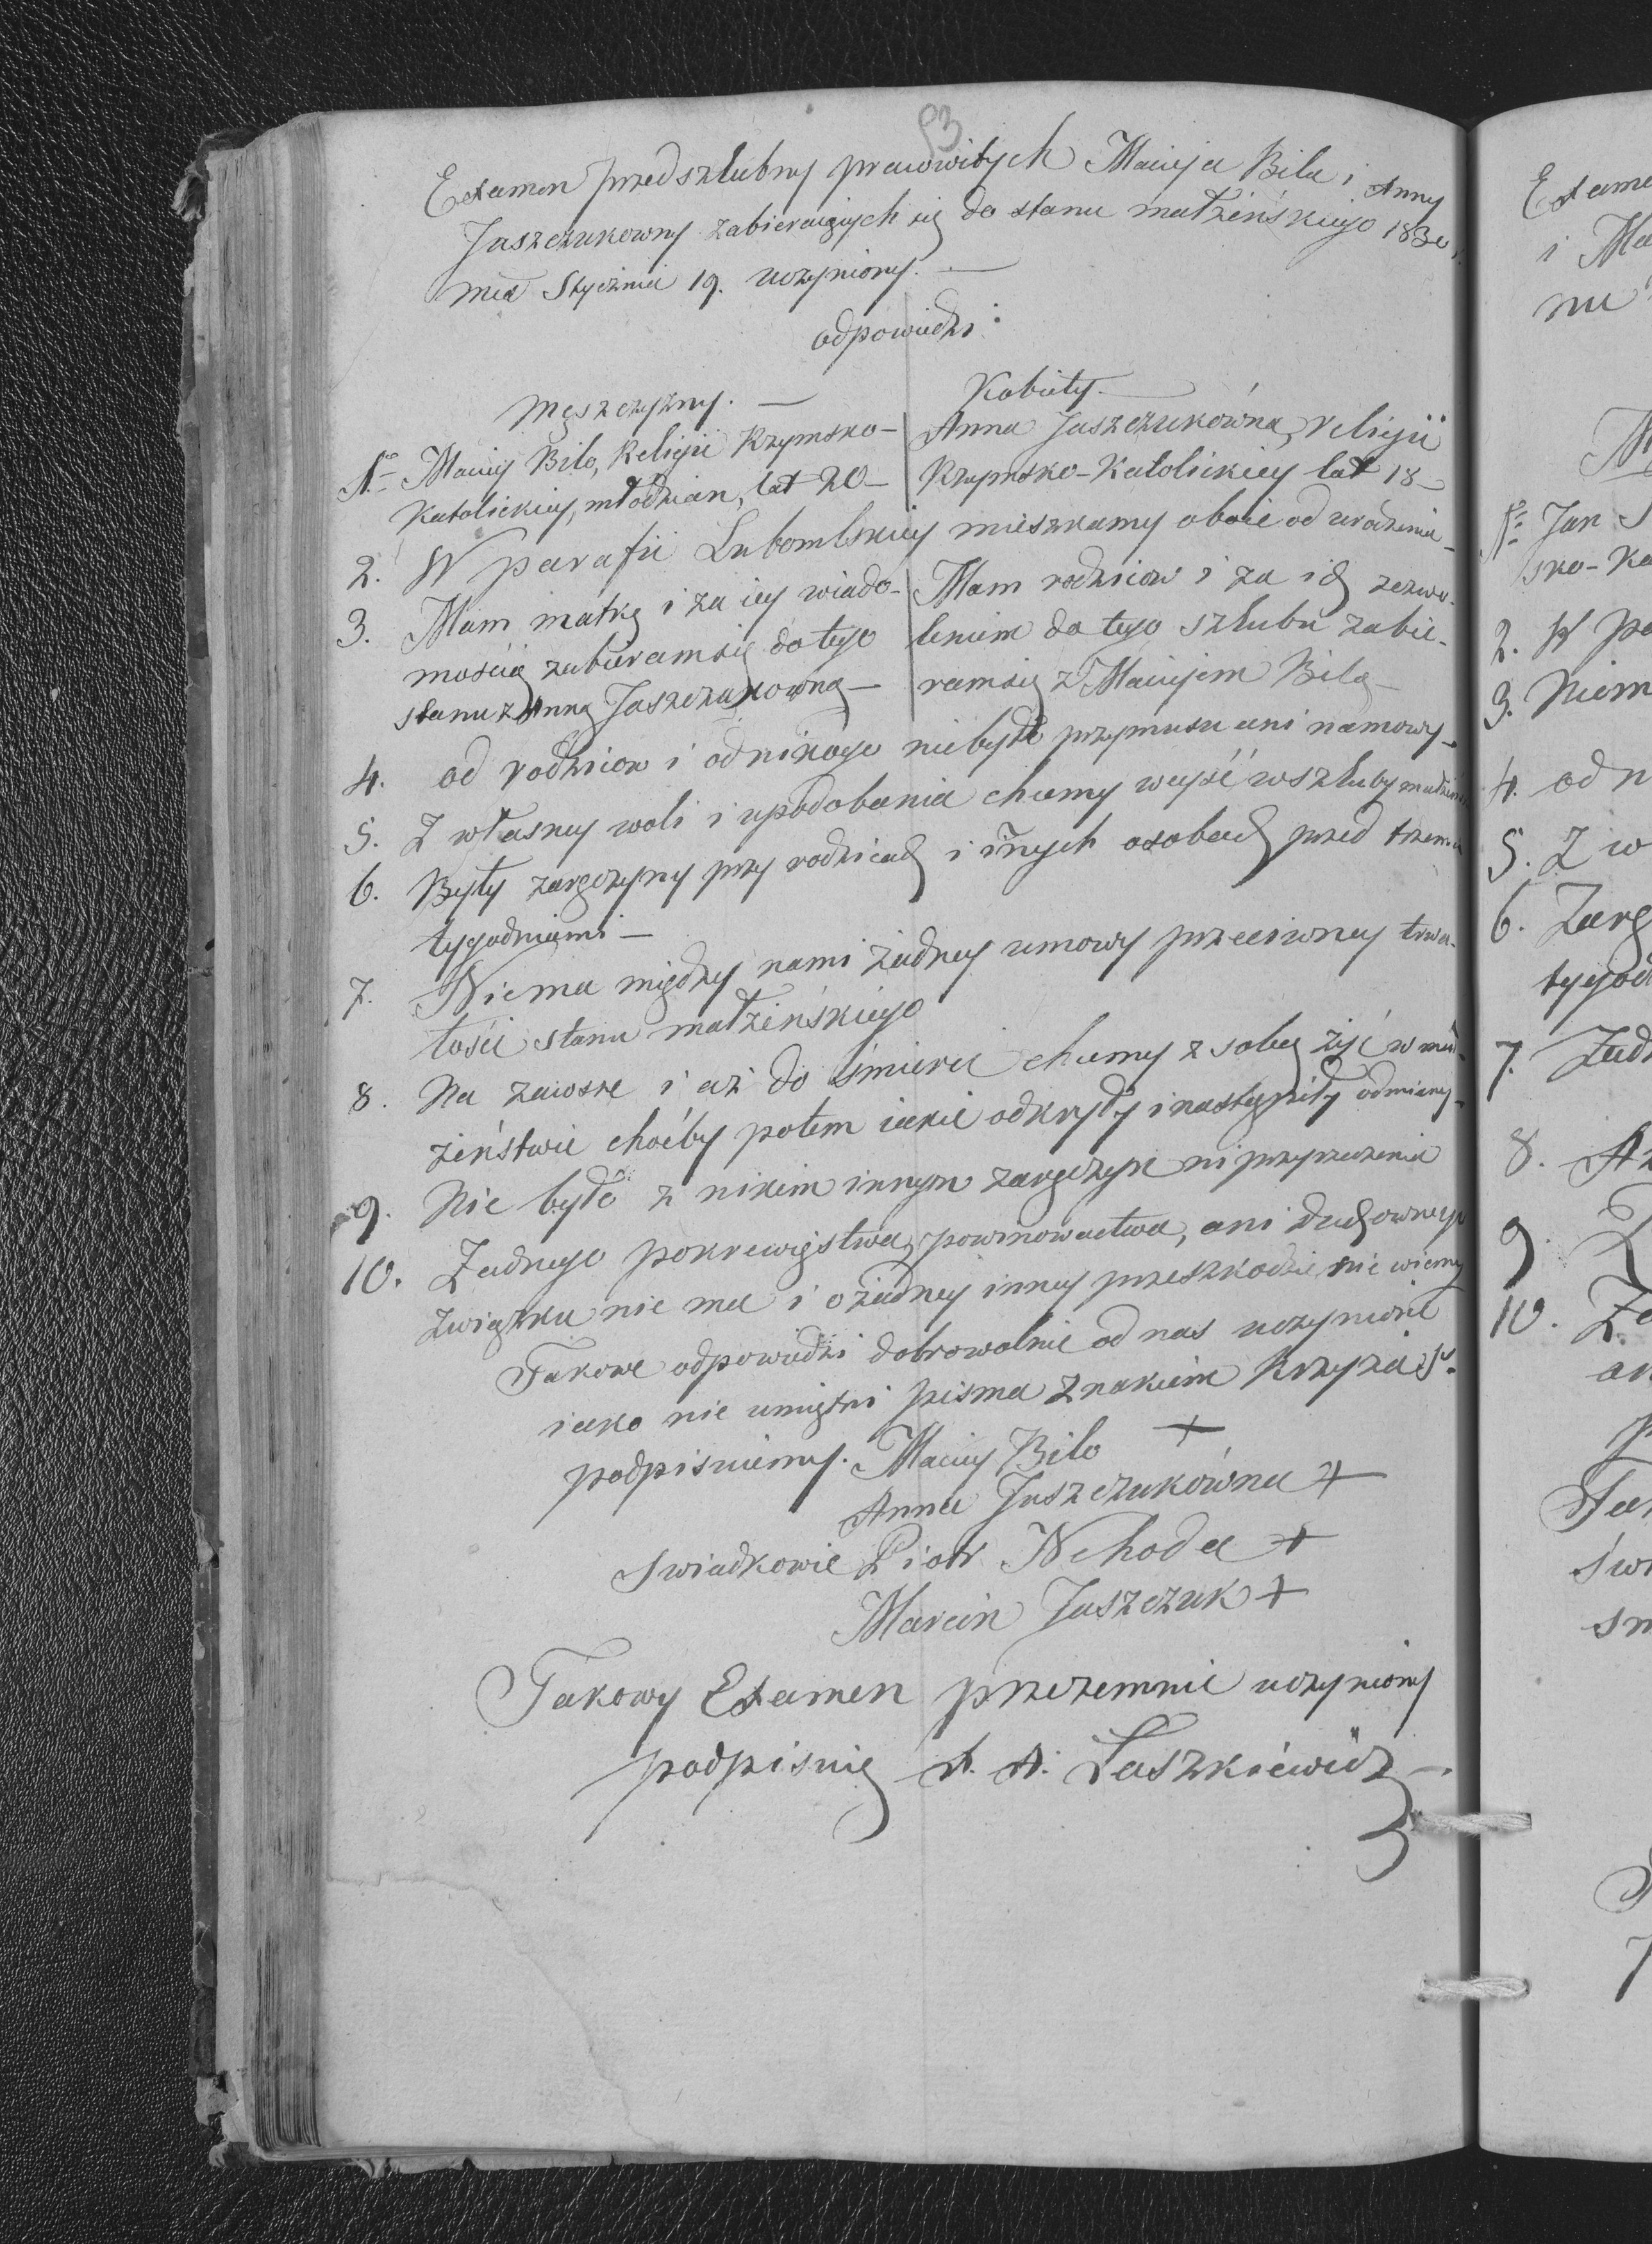 93
Examen przedszlubny pracowitych Macieja Bila i Anny
Jaszczukowny zabieraiących się do stanu małżeńskiego 1830 r.
mca Stycznia 19. uczyniony. —
odpowiedzi:
Męszczyzny. —
1. Maciey Bilo, Religii Rzymsko-
Katolickiey, młodzian, lat 20 —
Kobiety. —
Anna Jaszczukówna, religii
Rzymsko-Katolickiey lat 18 —
2. W parafii Lubomlskiey mieszkamy oboie od urodzenia —
3. Mam matkę i za iey wiado-
mością zabieramsię do tego
stanu z Anną Jaszczukowną —
Mam rodziców i za ich zezwo-
leniem do tego szlubu zabie-
ramsię z Maciejem Bilą —
4. od rodzicow i od nikogo niebyło przymusu ani namowy —
5. Z własney woli i upodobania chcemy weyść w szluby małżeń
6. Były zaręczyny przy rodzicach i iñych osobach przed trzema
tygodniami —
7. Niema między nami żadney umowy przeciwney trwa-
łości stanu małżeńskiego
8. Na zawsze i aż do śmierci chcemy z sobą żyć w mał-
żeństwie choćby potem iakie odkryły i nastąpiły odmiany —
9. Nie było z nikim innym zaręczyn ni przyrzeczenia
10. Żadnego pokrewięstwa, powinowactwa, ani duchownego
związku nie ma i o żadney inney przeszkodzie nie wiemy
Takowe odpowiedzi dobrowolnie od nas uczynione
iako nie umiętni pisma znakiem Krzyża S.
podpisuiemy. Maciey Bilo +
Anna Jaszczukówna +
Swiadkowie Piotr Nehoda +
Marcin Jaszczuk +
Takowy Examen przezemnie uczyniony
podpisuię X. A. Laszkiéwicz —
Exame
i Ma
nu
M
1. Jan S
sko-Ka
2. W pa
3. Niem
4. od n
5. Z w
6. Zarę
tygod
7. Żad
8. Aż
9.
10. Ża
an
Tak
świ